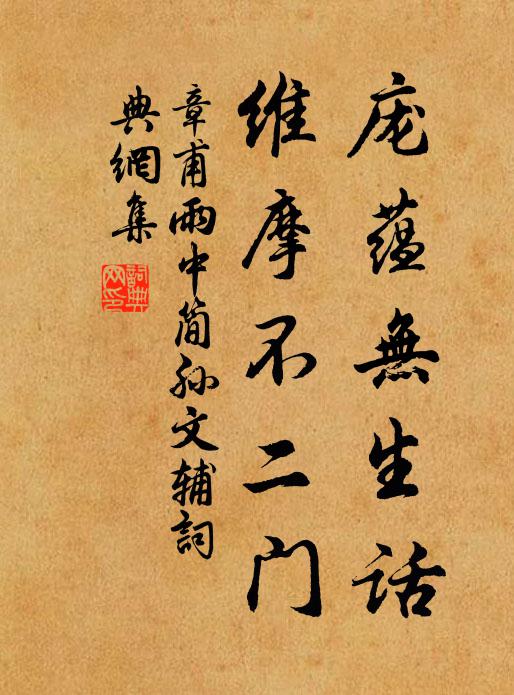 庞蕴無生话
维摩不二门
章甫雨中简孙文辅詞
典網集
詞典网印